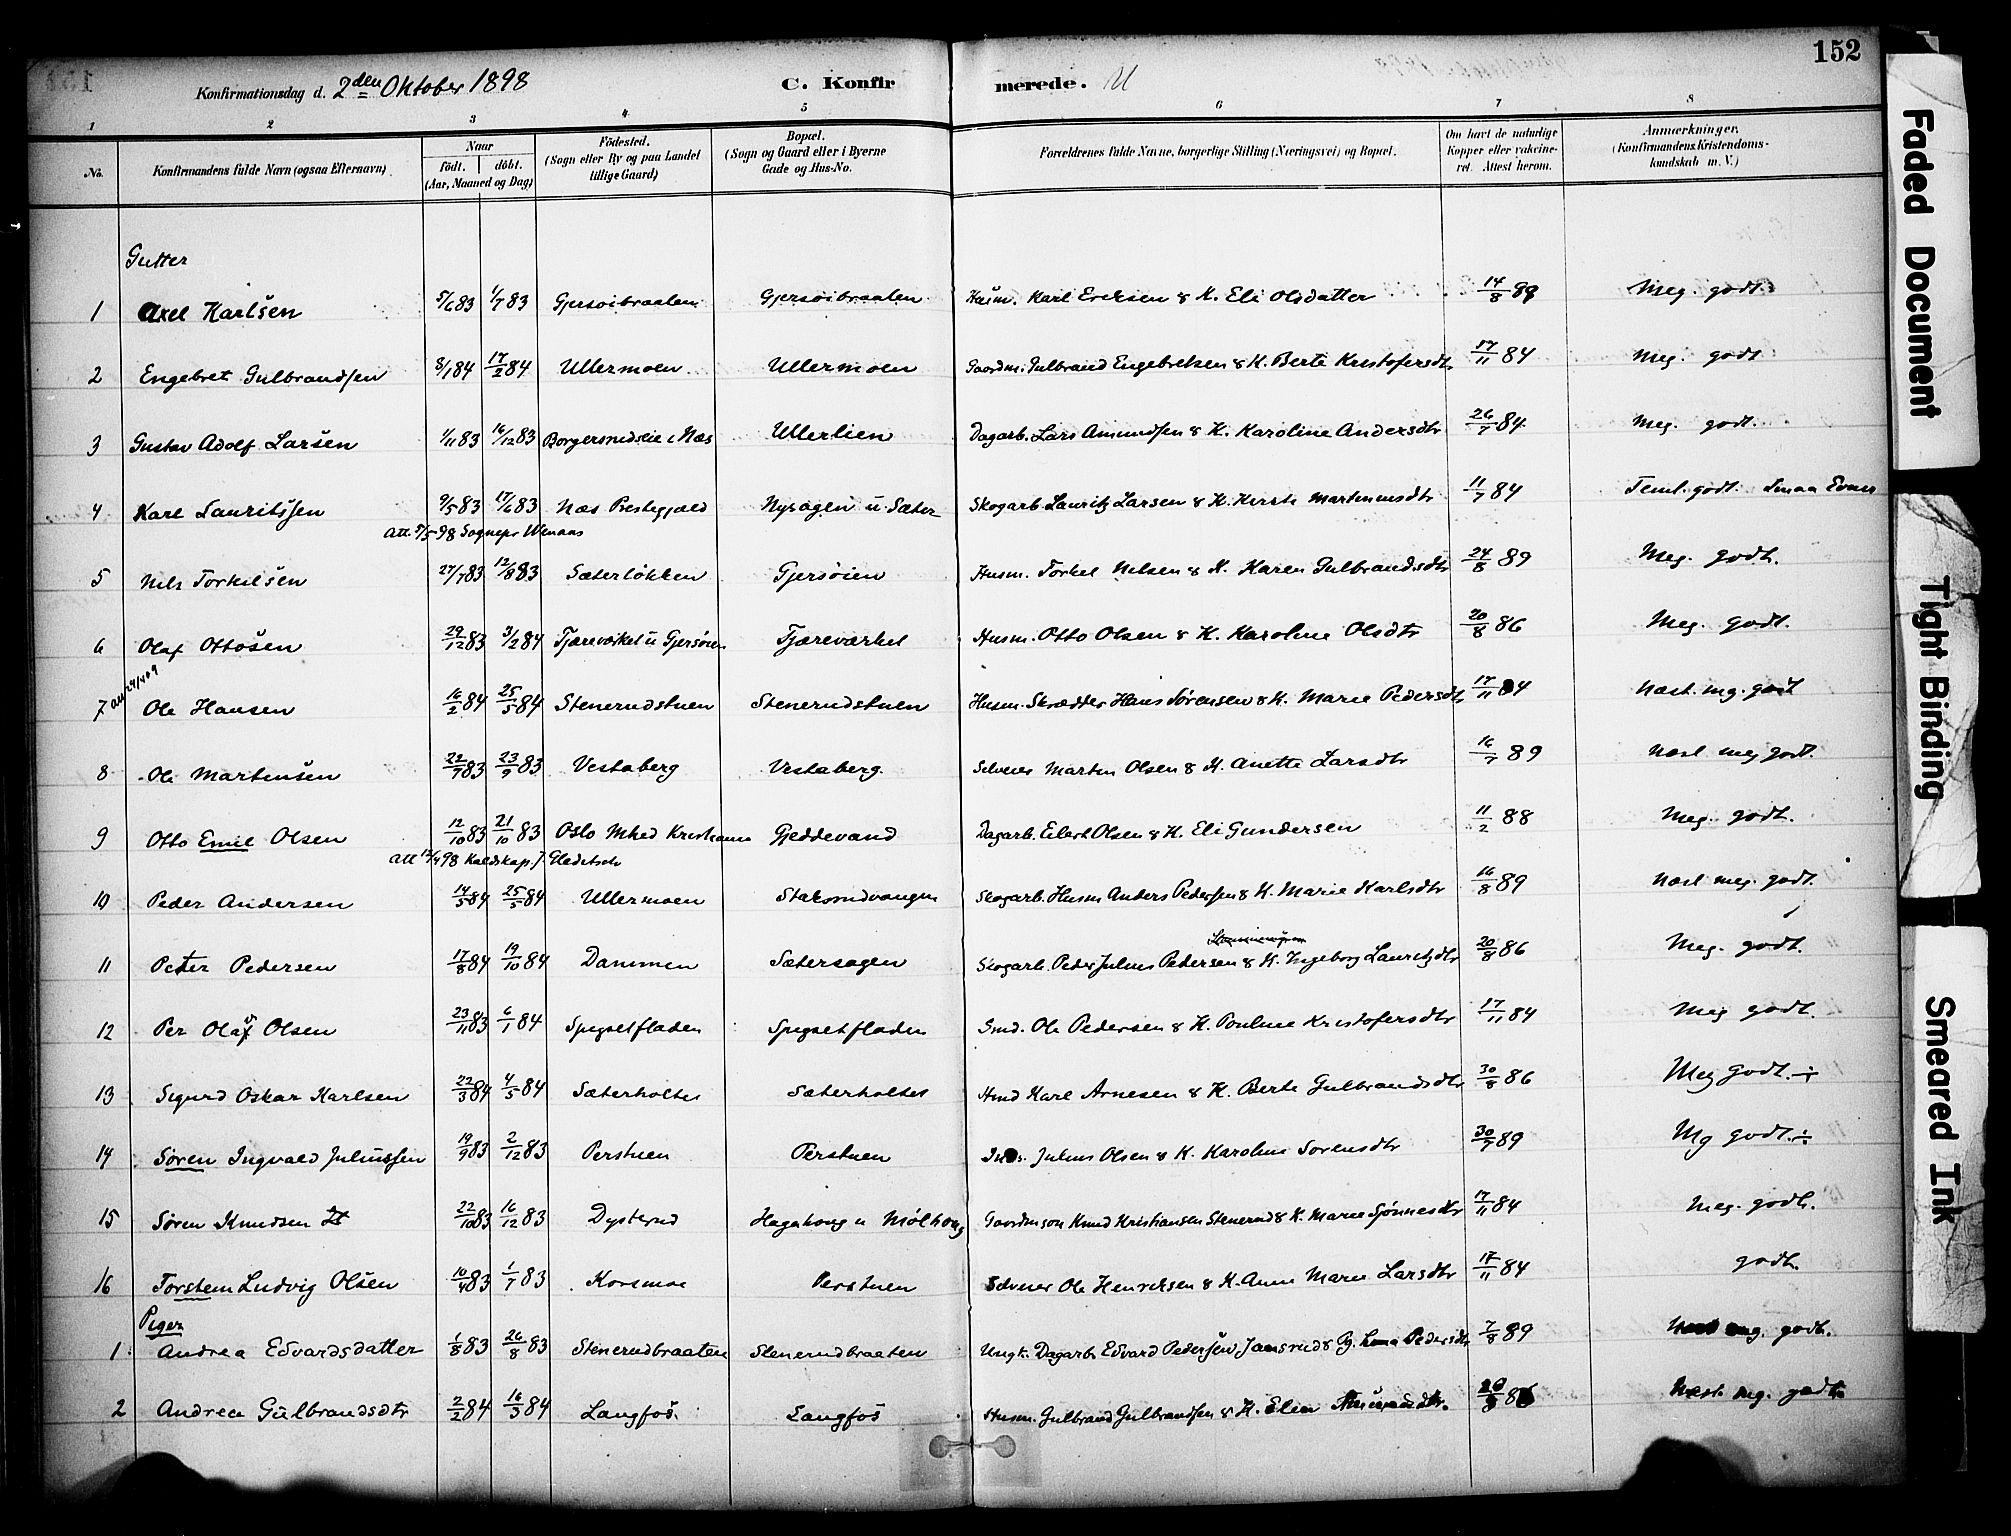 152
Konfirmationsdag d. 2den Oktober 1898 C. Konfirmerede. U
1 2 3 4 5 6 7 8
No. Konfirmandens fulde Navn (ogsaa Efternavn) Naar født. døbt. (Aar, Maaned og Dag) Fødested. (Sogn eller By og paa Landet tillige Gaard) Bopæl. (Sogn og Gaard eller i Byerne Gade og Hus-No. Forældrenes fulde Navne, borgerlige Stilling (Næringsvei) og Bopæl. Om havt de naturlige Kopper eller vakcineret. Attest herom. Anmærkninger. (Konfirmandens Kristendomskundskab m. V.)
Gutter
1 Axel Karlsen 5/6 83 1/7 83 Gjersøibraaten Gjersøibraaten Husm. Karl Ericksen & K. Eli Olsdatter 14/8 89 Meg. godt.
2 Engebret Gulbrandsen 8/1 84 17/2 84 Ullermoen Ullermoen Gaardm. Gulbrand Engebretsen & K. Berte Kristofersdtr 17/11 84 Meg. godt
3 Gustav Adolf Larsen 1/11 83 16/12 83 Borgersrudeie i Næs Ullerlien Dagarb. Lars Amundsen & K. Karoline Andersdtr 26/7 84 Meg. godt.
4 Karl Lauritssen 9/5 83 17/6 83 Næs Prestegjæld Nysagen u. Sæter Skogarb. Lauritz Larsen & K. Kersti Martinusdtr 11/7 84 Teml. godt Smaa Evner
Att. 5/5 98 Sognepr
5 Nils Torkilsen 27/7 83 12/8 83 Sæterløkken Gjersøien Husm. Torkel Nilsen & K. Karen Gulbrandsdtr 24/8 89 Meg. godt.
6 Olaf Ottosen 29/12 83 3/2 84 Tjæreværket u Gjersøien Tjæreværket Husm. Otto Olsen & K. Karoline Olsdtr 20/8 86 Meg. godt.
7 Ole Hansen 16/2 84 25/5 84 Stenerudstuen Stenerudstuen Husm. Skrædder Hans Sørensen & K. Marie Pedersdtr 17/11 84 Næst mg. godt
8 Ole Martinsen 22/7 83 23/9 83 Vestaberg Vestaberg Selveier Martin Olsen & K. Anette Larsdtr 16/7 89 Næst meg godt.
9 Otto Emil Olsen 12/10 83 21/10 83 Oslo Mhed Kristiania Gjeddevand Dagarb. Eilert Olsen & K. Eli Gundersen 11/2 88 Meg. godt.
10 Peder Andersen 14/5 84 25/5 84 Ullermoen Staksrudvangen Skogarb. Husm Anders Pedersen & K. Marie Karlsdtr 16/8 89 Næst meg. godt.
11 Peter Pedersen 17/8 84 19/10 84 Dammen Sætersagen Skogarb. Peder Julius Pedersen & K. Ingeborg Lauritzdtr 20/8 86 Meg. godt.
12 Per Olaf Olsen 23/11 83 6/1 84 Spigsetfladen Spigsetfladen Smd. Ole Pedersen & K. Pouline Kristofersdtr 17/11 84 Meg godt.
13 Sigurd Oskar Karlsen 22/3 84 4/5 84 Sæterholtet Sæterholtet Hmd Karl Arnesen & K. Berte Gulbrandsdtr 30/8 86 Meg godt. ÷
14 Søren Ingvald Juliussen 19/9 83 2/12 83 Perstuen Perstuen Julius Olsen & K. Karoline Sorensdtr 30/7 89 Mg godt. ÷
15 Søren Knudsen 22/10 83 16/12 83 Dysterud Hagahoug u Mølhoug Gaardmson Knud Kristiansen Stenerud & K. Marie Sjønnesdtr 17/11 84 Meg. godt.
16 Torstein Ludvig Olsen 10/4 83 1/7 83 Korsmoe Perstuen Selveier Ole Henriksen & K. Anne Marie Larsdtr 17/11 84 godt.
Piger
1 Andrea Edvardsdatter 1/8 83 26/8 83 Stenerudbraaten Stenerudbraaten Ungk. Dagarb Edvard Pedersen Jamsrud & Pg. Lina Pedersdtr 7/8 89 Næst mg. godt.
2 Andrea Gulbrandsdtr 2/2 84 16/3 84 Langfos. Langfos Husm. Gulbrand Gulbrandsen & K. Elin 86 Næst mg. godt
Faded Document
Tight Binding
Smeared Ink